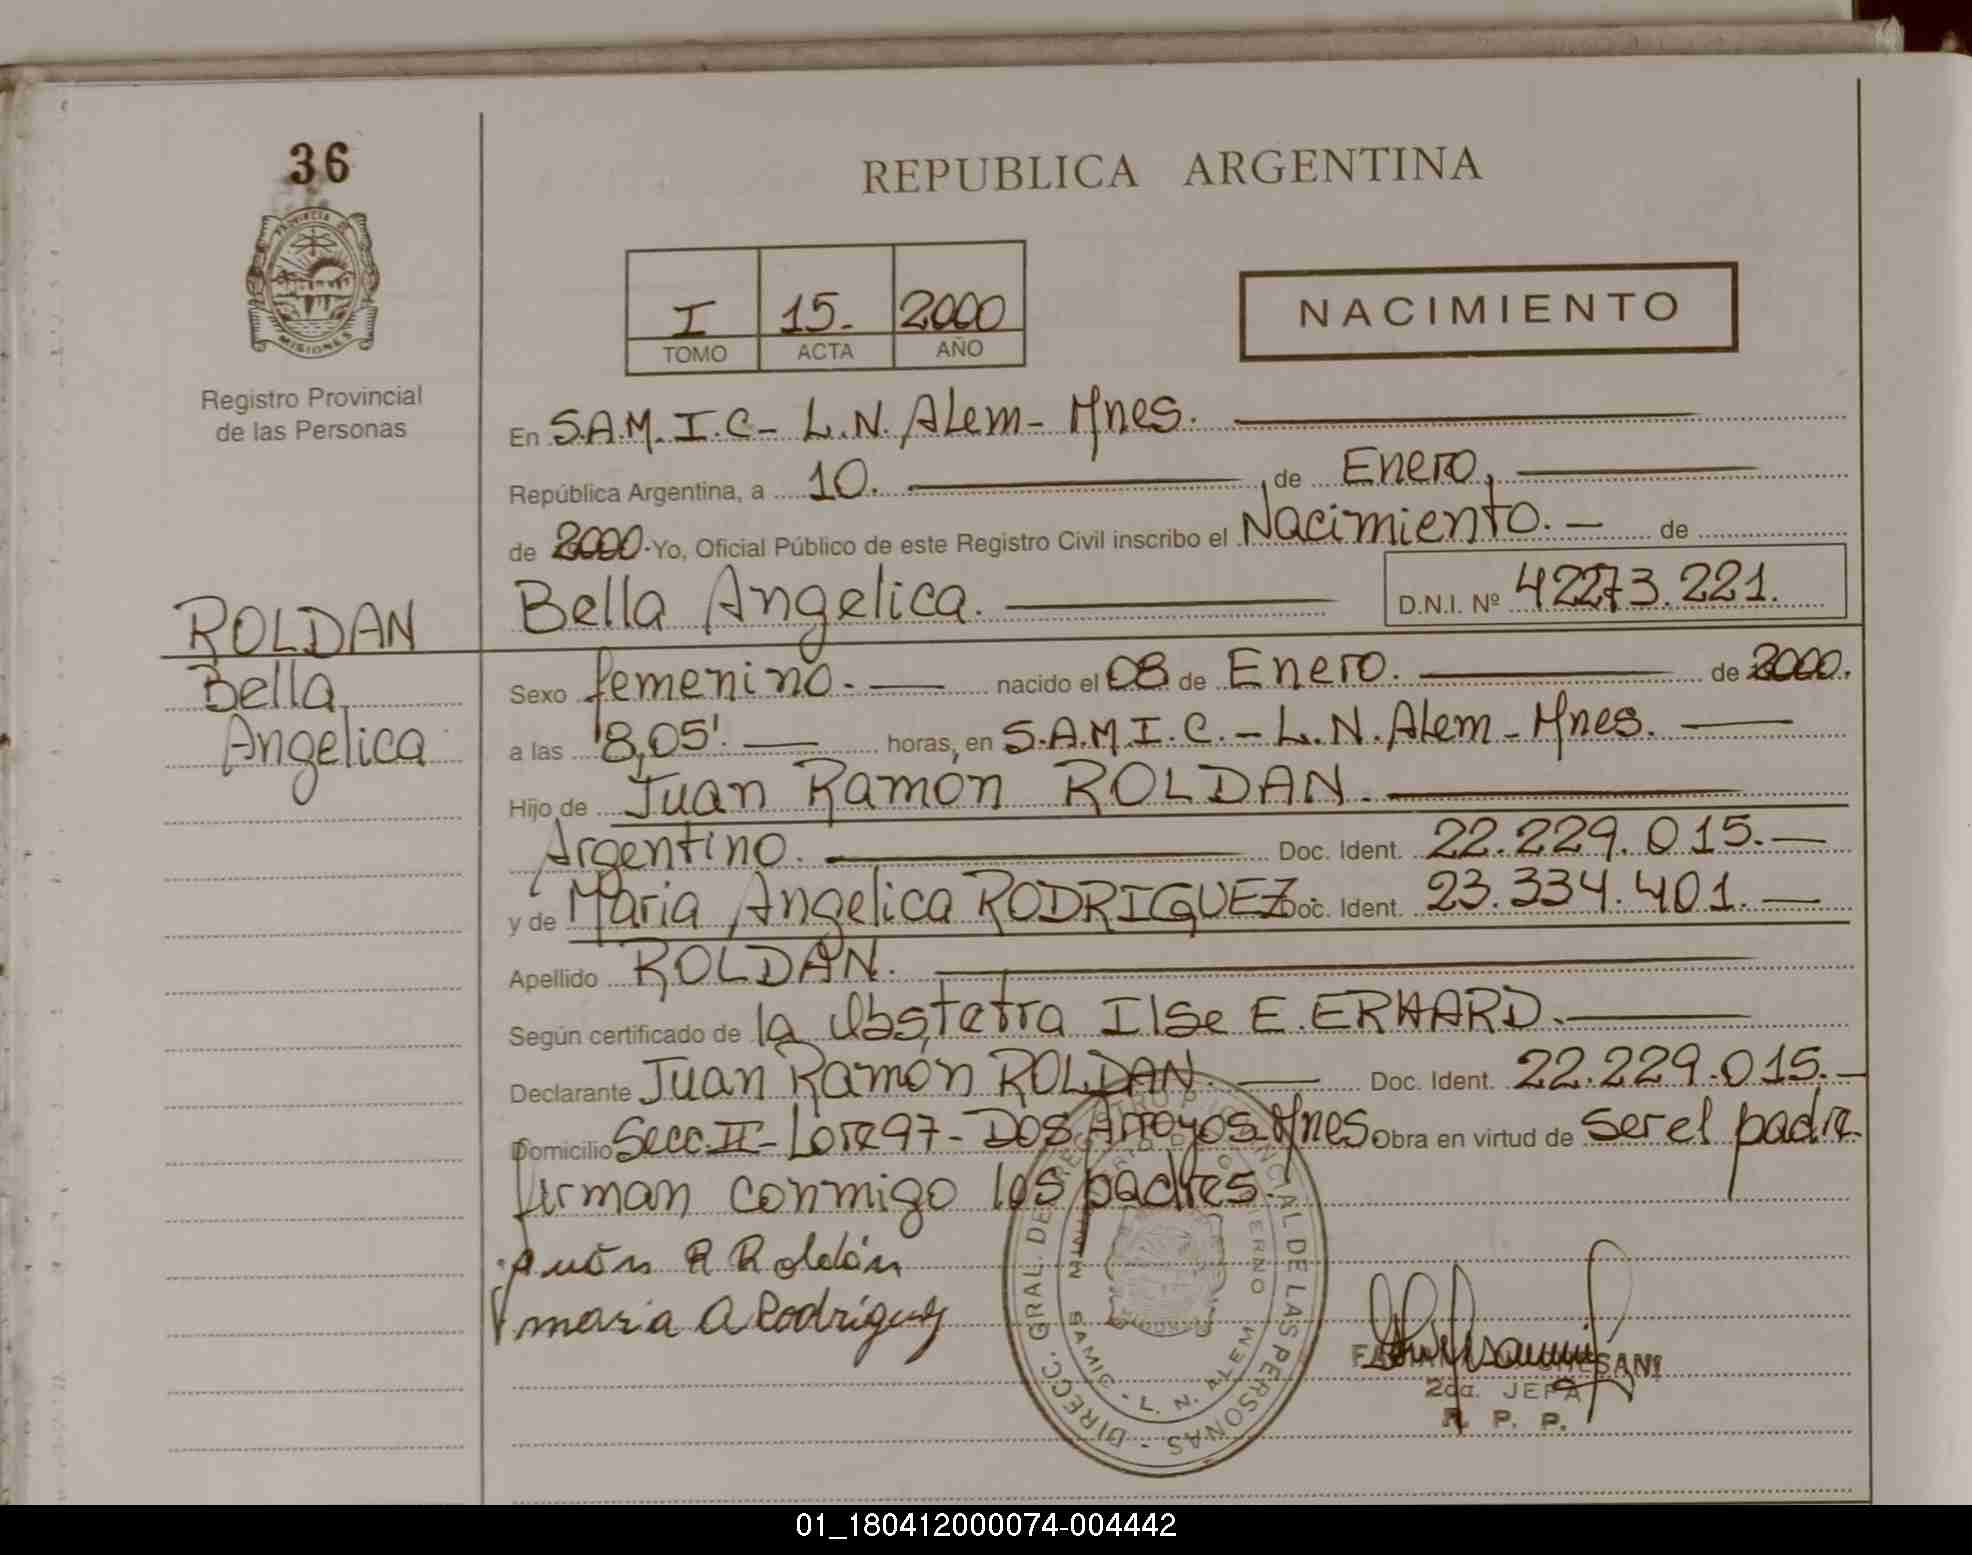 36
PROVINCIA DE
MISIONES
Registro Provincial
de las Personas
ROLDAN
Bella
Angelica
REPUBLICA ARGENTINA
I 15- 2000
TOMO ACTA AÑO
NACIMIENTO
En S.A.M.I.C- L.N. Alem- Mnes.
República Argentina, a 10. de Enero,
de 2000. Yo, Oficial Público de este Registro Civil inscribo el Nacimiento. - de
Bella Angelica. D.N.I. Nº 42273.221.
Sexo femenino. nacido el 08 de Enero. de 2000.
a las 8,05'. horas, en S.A.M.I.C. - L.N. Alem - Mnes.
Hijo de Juan Ramón ROLDAN.
Argentino. Doc. Ident. 22.229.015.
y de Maria Angelica RODRIGUEZ Doc. Ident. 23.334.401.
Apellido ROLDAN.
Según certificado de la Obstetra Ilse E. ERHARD.
Declarante Juan Ramón ROLDAN. Doc. Ident. 22.229.015.
Domicilio Secc. II - Lote 97 - Dos Arroyos Mnes Obra en virtud de ser el padre
firman conmigo los padres.
Juán R Roldán
maria A Rodriguez
DIRECC. GRAL. DEL REGISTRO PROVINCIAL DE LAS PERSONAS
SAMIC - L. N. ALEM
2da. JEFA
R. P. P.
01_180412000074-004442